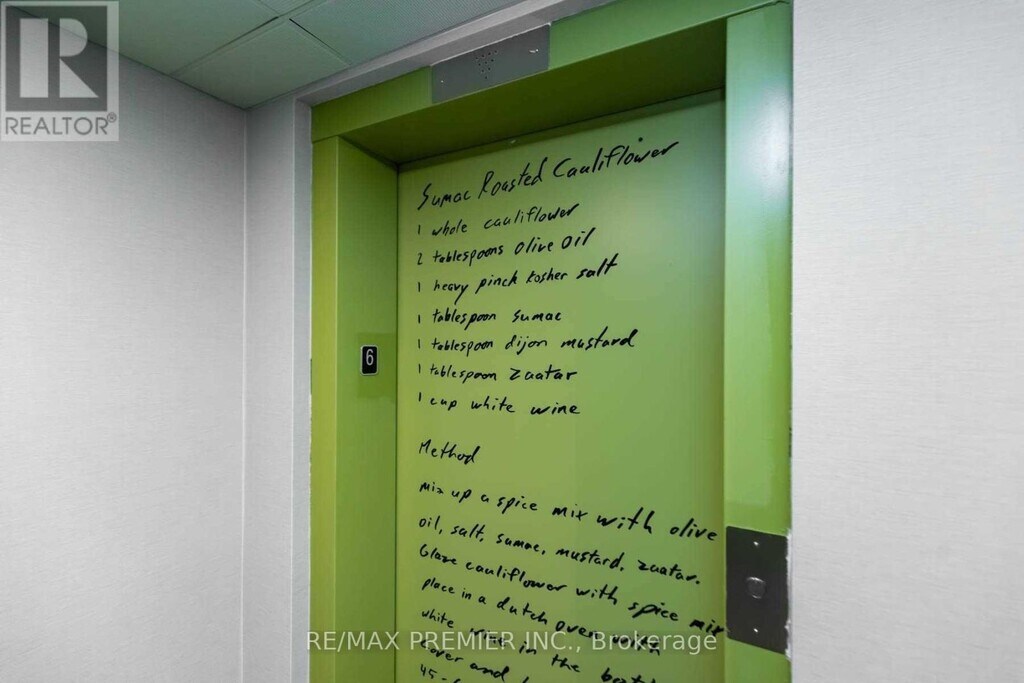 R
REALTOR®
Sumac Roasted Cauliflower
1 whole cauliflower
2 tablespoons Olive Oil
1 heavy pinch kosher salt
1 tablespoon sumac
1 tablespoon dijon mustard
1 tablespoon zaatar
1 cup white wine
6
Method
mix up a spice mix with olive
oil, salt, sumac, mustard, zaatar.
Glaze cauliflower with spice mix
place in a dutch oven with
white wine in the
cover and
45-
RE/MAX PREMIER INC., Brokerage